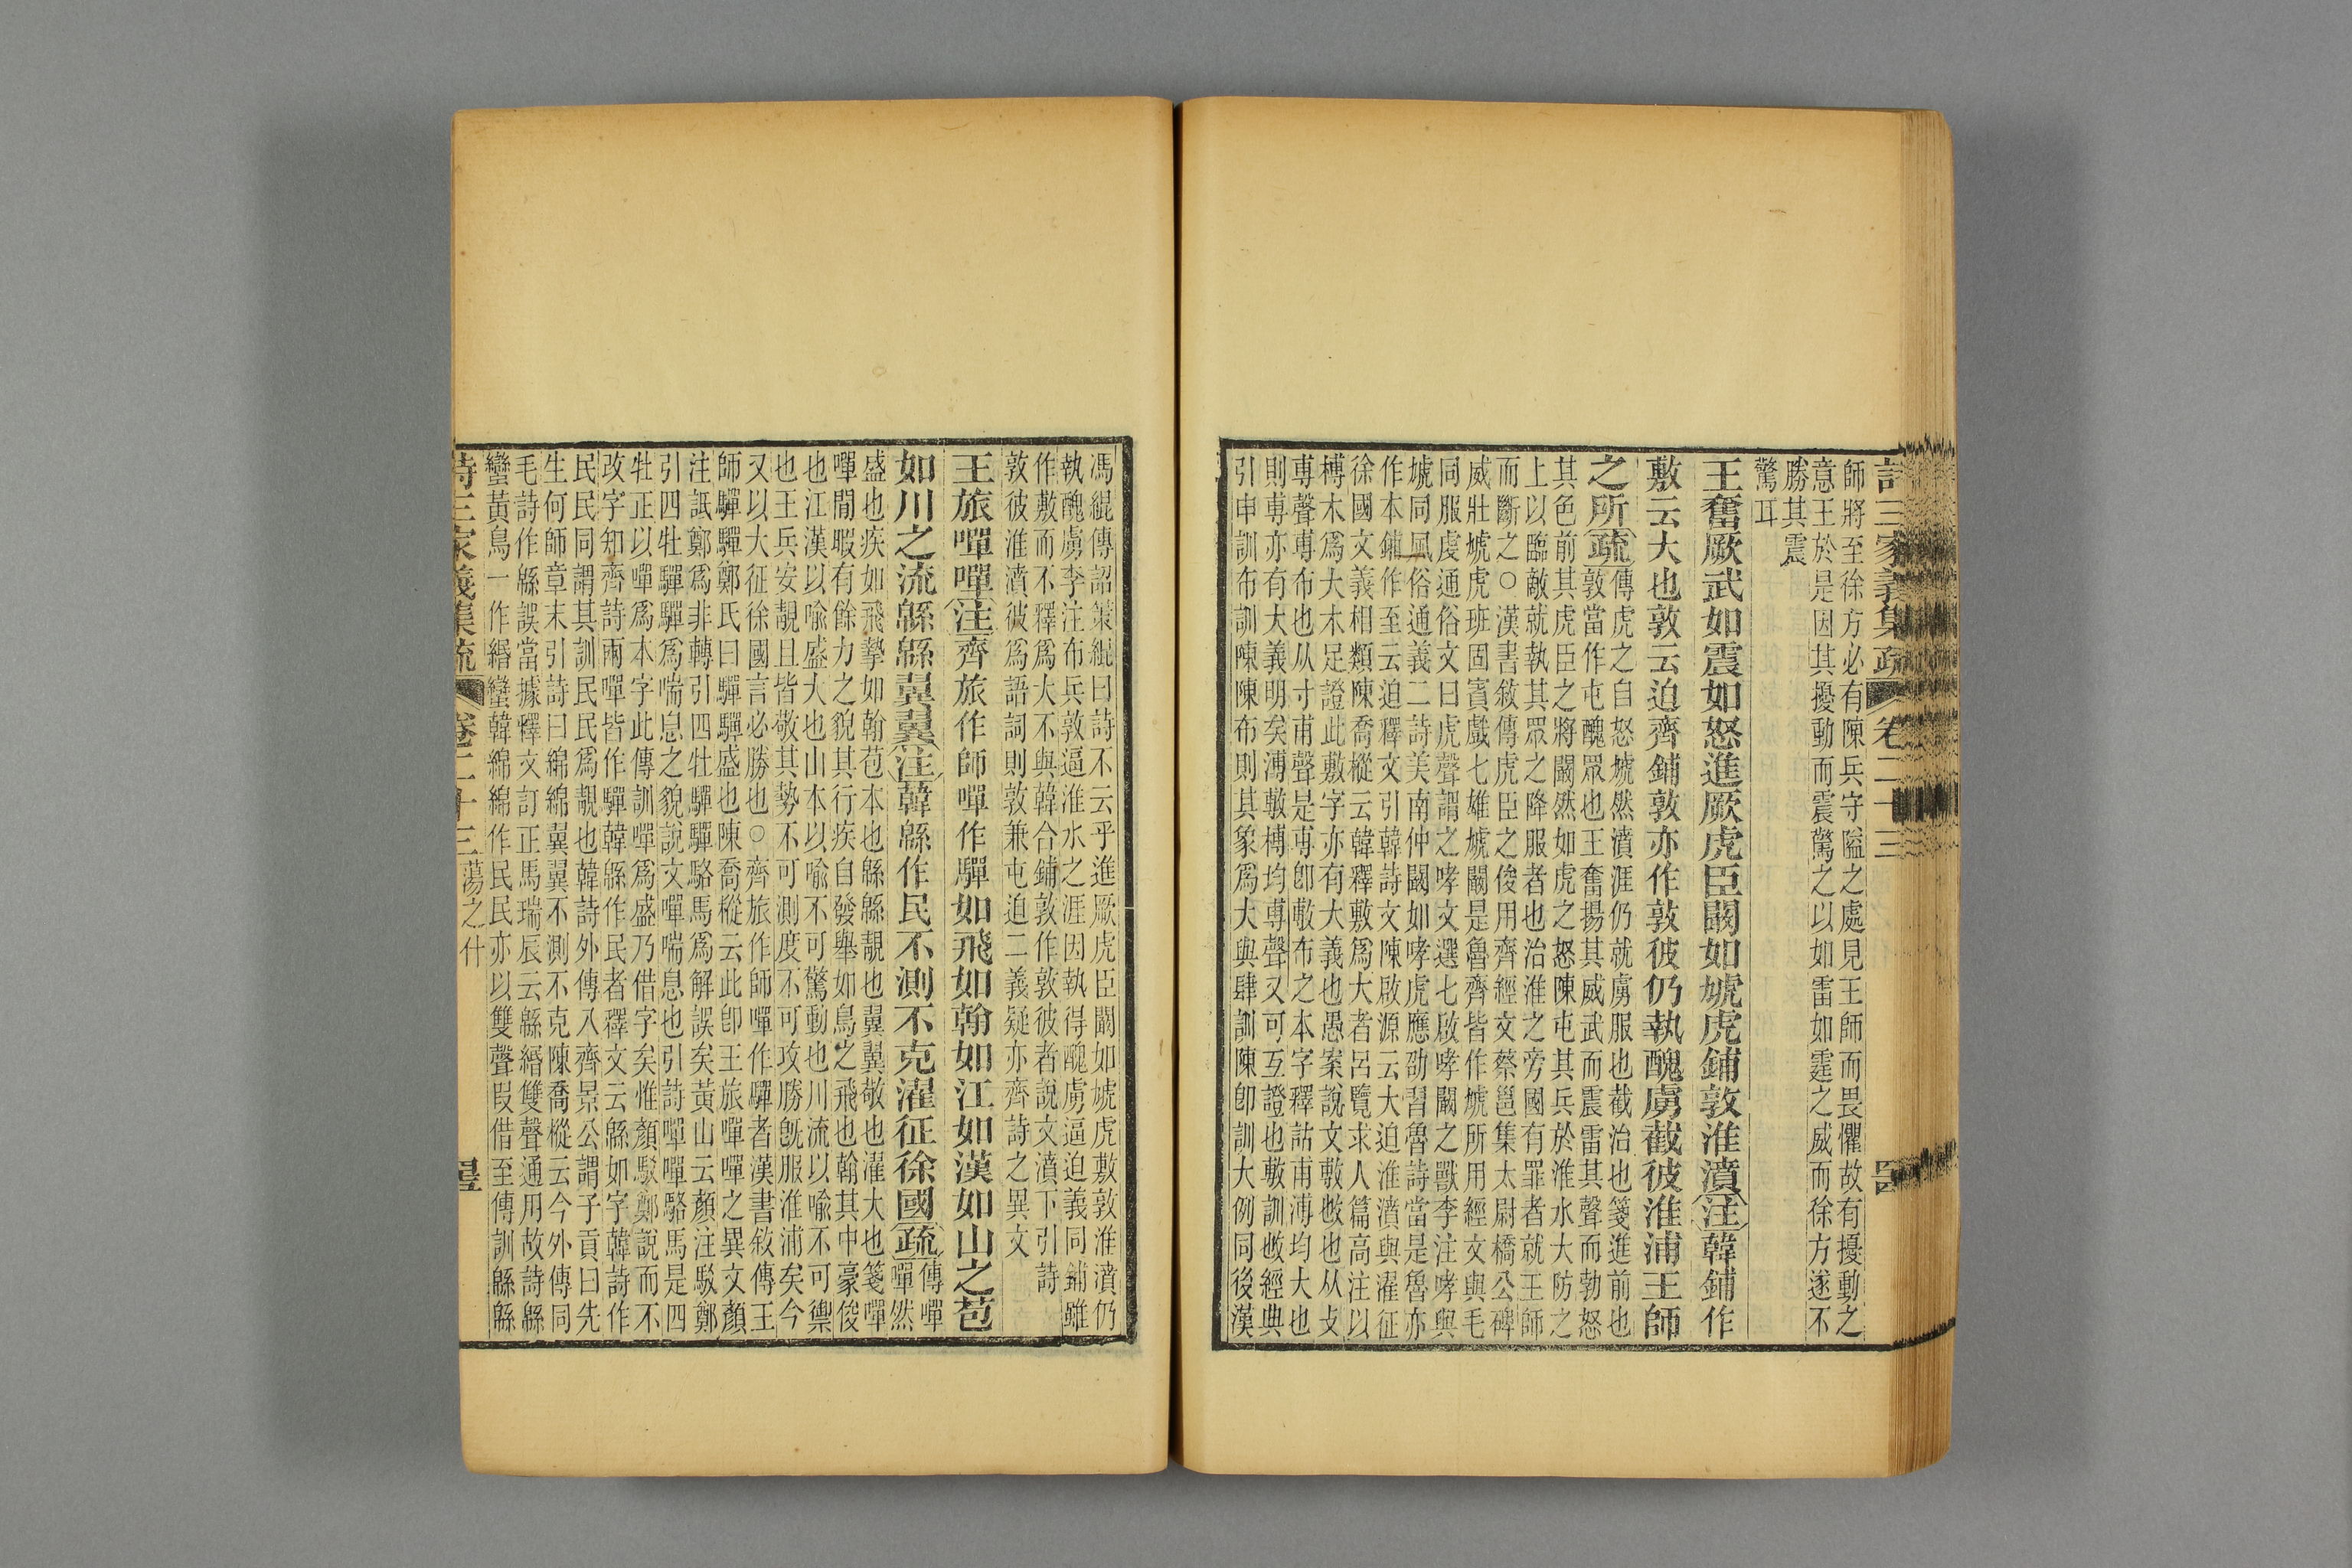 詩三家義集疏 卷二十三
師將至徐方必有陳兵守隘之處見王師而畏懼故有擾動之
意王於是因其擾動而震驚之以如雷如霆之威而徐方遂不
勝其震
驚耳
王奮厥武如震如怒進厥虎臣闞如虓虎鋪敦淮濆注韓鋪作
敷云大也敦云迫齊鋪敦亦作敦彼仍執醜虜截彼淮浦王師
之所疏傳虎之自怒虓然濆涯仍就虜服也截治也箋進前也
敦當作屯醜眾也王奮揚其威武而震雷其聲而勃怒
其色前其虎臣之將闞然如虎之怒陳屯其兵於淮水大防之
上以臨敵就執其眾之降服者也治淮之旁國有罪者就王師
而斷之○漢書敘傳虎臣之俊用齊經文蔡邕集太尉橋公碑
威壯虓虎班固賓戲七雄虓闞是魯齊皆作虓所用經文與毛
同服虔通俗文曰虎聲謂之哮文選七啟哮闞之獸李注哮與
虓同風俗通義二詩美南仲闞如哮虎應劭習魯詩當是魯亦
作本鋪作至云迫釋文引韓詩文陳啟源云大迫淮濆與濯征
徐國文義相類陳喬樅云韓釋敷為大者呂覽求人篇高注以
榑木為大木足證此敷字亦有大義也愚案說文敷㪉也从攴
尃聲尃布也从寸甫聲是尃即敷布之本字釋詁甫溥均大也
則尃亦有大義明矣溥敷榑均尃聲又可互證也敷訓㪉經典
引申訓布訓陳陳布則其象為大與肆訓陳即訓大例同後漢
馮緄傳詔策緄曰詩不云乎進厥虎臣闞如虓虎敷敦淮濆仍
執醜虜李注布兵敦逼淮水之涯因執得醜虜逼迫義同鋪雖
作敷而不釋為大不與韓合鋪敦作敦彼者說文濆下引詩
敦彼淮濆彼為語詞則敦兼屯迫二義疑亦齊詩之異文
王旅嘽嘽注齊旅作師嘽作驒如飛如翰如江如漢如山之苞
如川之流緜緜翼翼注韓緜作民不測不克濯征徐國疏傳嘽
嘽然
盛也疾如飛摯如翰苞本也緜緜靚也翼翼敬也濯大也箋嘽
嘽閒暇有餘力之貌其行疾自發舉如鳥之飛也翰其中豪俊
也江漢以喻盛大也山本以喻不可驚動也川流以喻不可禦
也王兵安靚且皆敬其勢不可測度不可攻勝既服淮浦矣今
又以大征徐國言必勝也○齊旅作師嘽作驒者漢書敘傳王
師驒驒鄭氏曰驒驒盛也陳喬樅云此即王旅嘽嘽之異文顏
注詆鄭為非轉引四牡驒驒駱馬為解誤矣黃山云顏注駁鄭
引四牡驒驒為喘息之貌說文嘽喘息也引詩嘽嘽駱馬是四
牡正以嘽為本字此傳訓嘽為盛乃借字矣惟顏駁鄭說而不
改字知齊詩兩嘽皆作驒韓緜作民者釋文云緜如字韓詩作
民民同謂其訓民民為靚也韓詩外傳八齊景公謂子貢曰先
生何師章末引詩曰綿綿翼翼不測不克陳喬樅云今外傳同
毛詩作緜誤當據釋文訂正馬瑞辰云緜緡雙聲通用故詩緜
蠻黃鳥一作緡蠻韓綿綿作民民亦以雙聲叚借至傳訓緜緜
詩三家義集疏 卷二十三 蕩之什